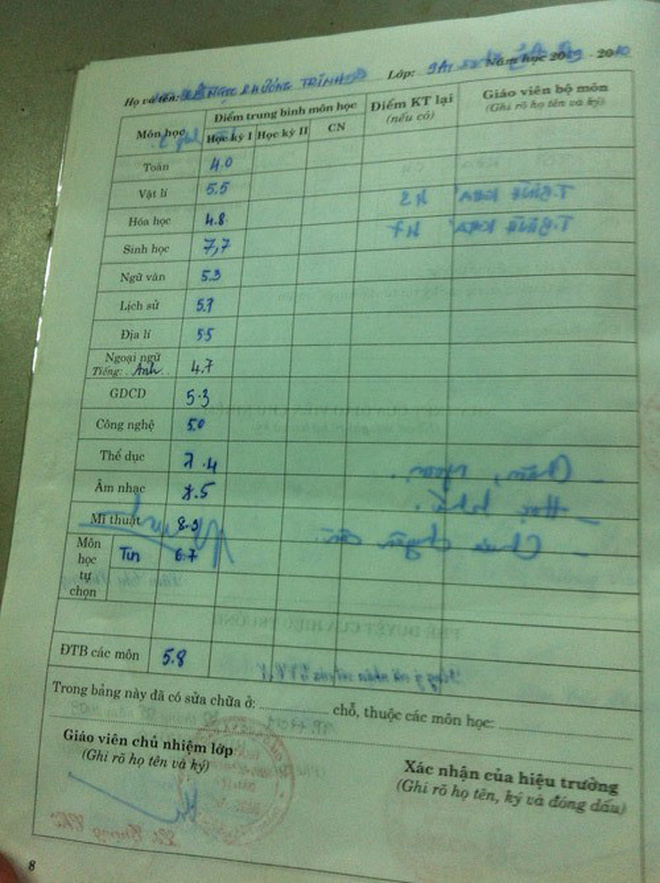 Họ và tên: NGỌC PHƯƠNG TRINH Lớp: 9A1 Năm học 2009 - 2010
Môn học Điểm trung bình môn học Điểm KT lại (nếu có) Giáo viên bộ môn (Ghi rõ họ tên và ký)
Học kỳ I Học kỳ II CN
Toán 4.0
Vật lí 5.5
Hóa học 4.8
Sinh học 7,7
Ngữ văn 5.3
Lịch sử 5.7
Địa lí 5.5
Ngoại ngữ
Tiếng: Anh 4.7
GDCD 5.3
Công nghệ 5.0
Thể dục 7.4
Âm nhạc 7.5
Mĩ thuật
Môn học tự chọn Tin 6.7
ĐTB các môn 5.8
Trong bảng này đã có sửa chữa ở: .................... chỗ, thuộc các môn học: ....................
Giáo viên chủ nhiệm lớp
(Ghi rõ họ tên và ký)
Xác nhận của hiệu trưởng
(Ghi rõ họ tên, ký và đóng dấu)
8